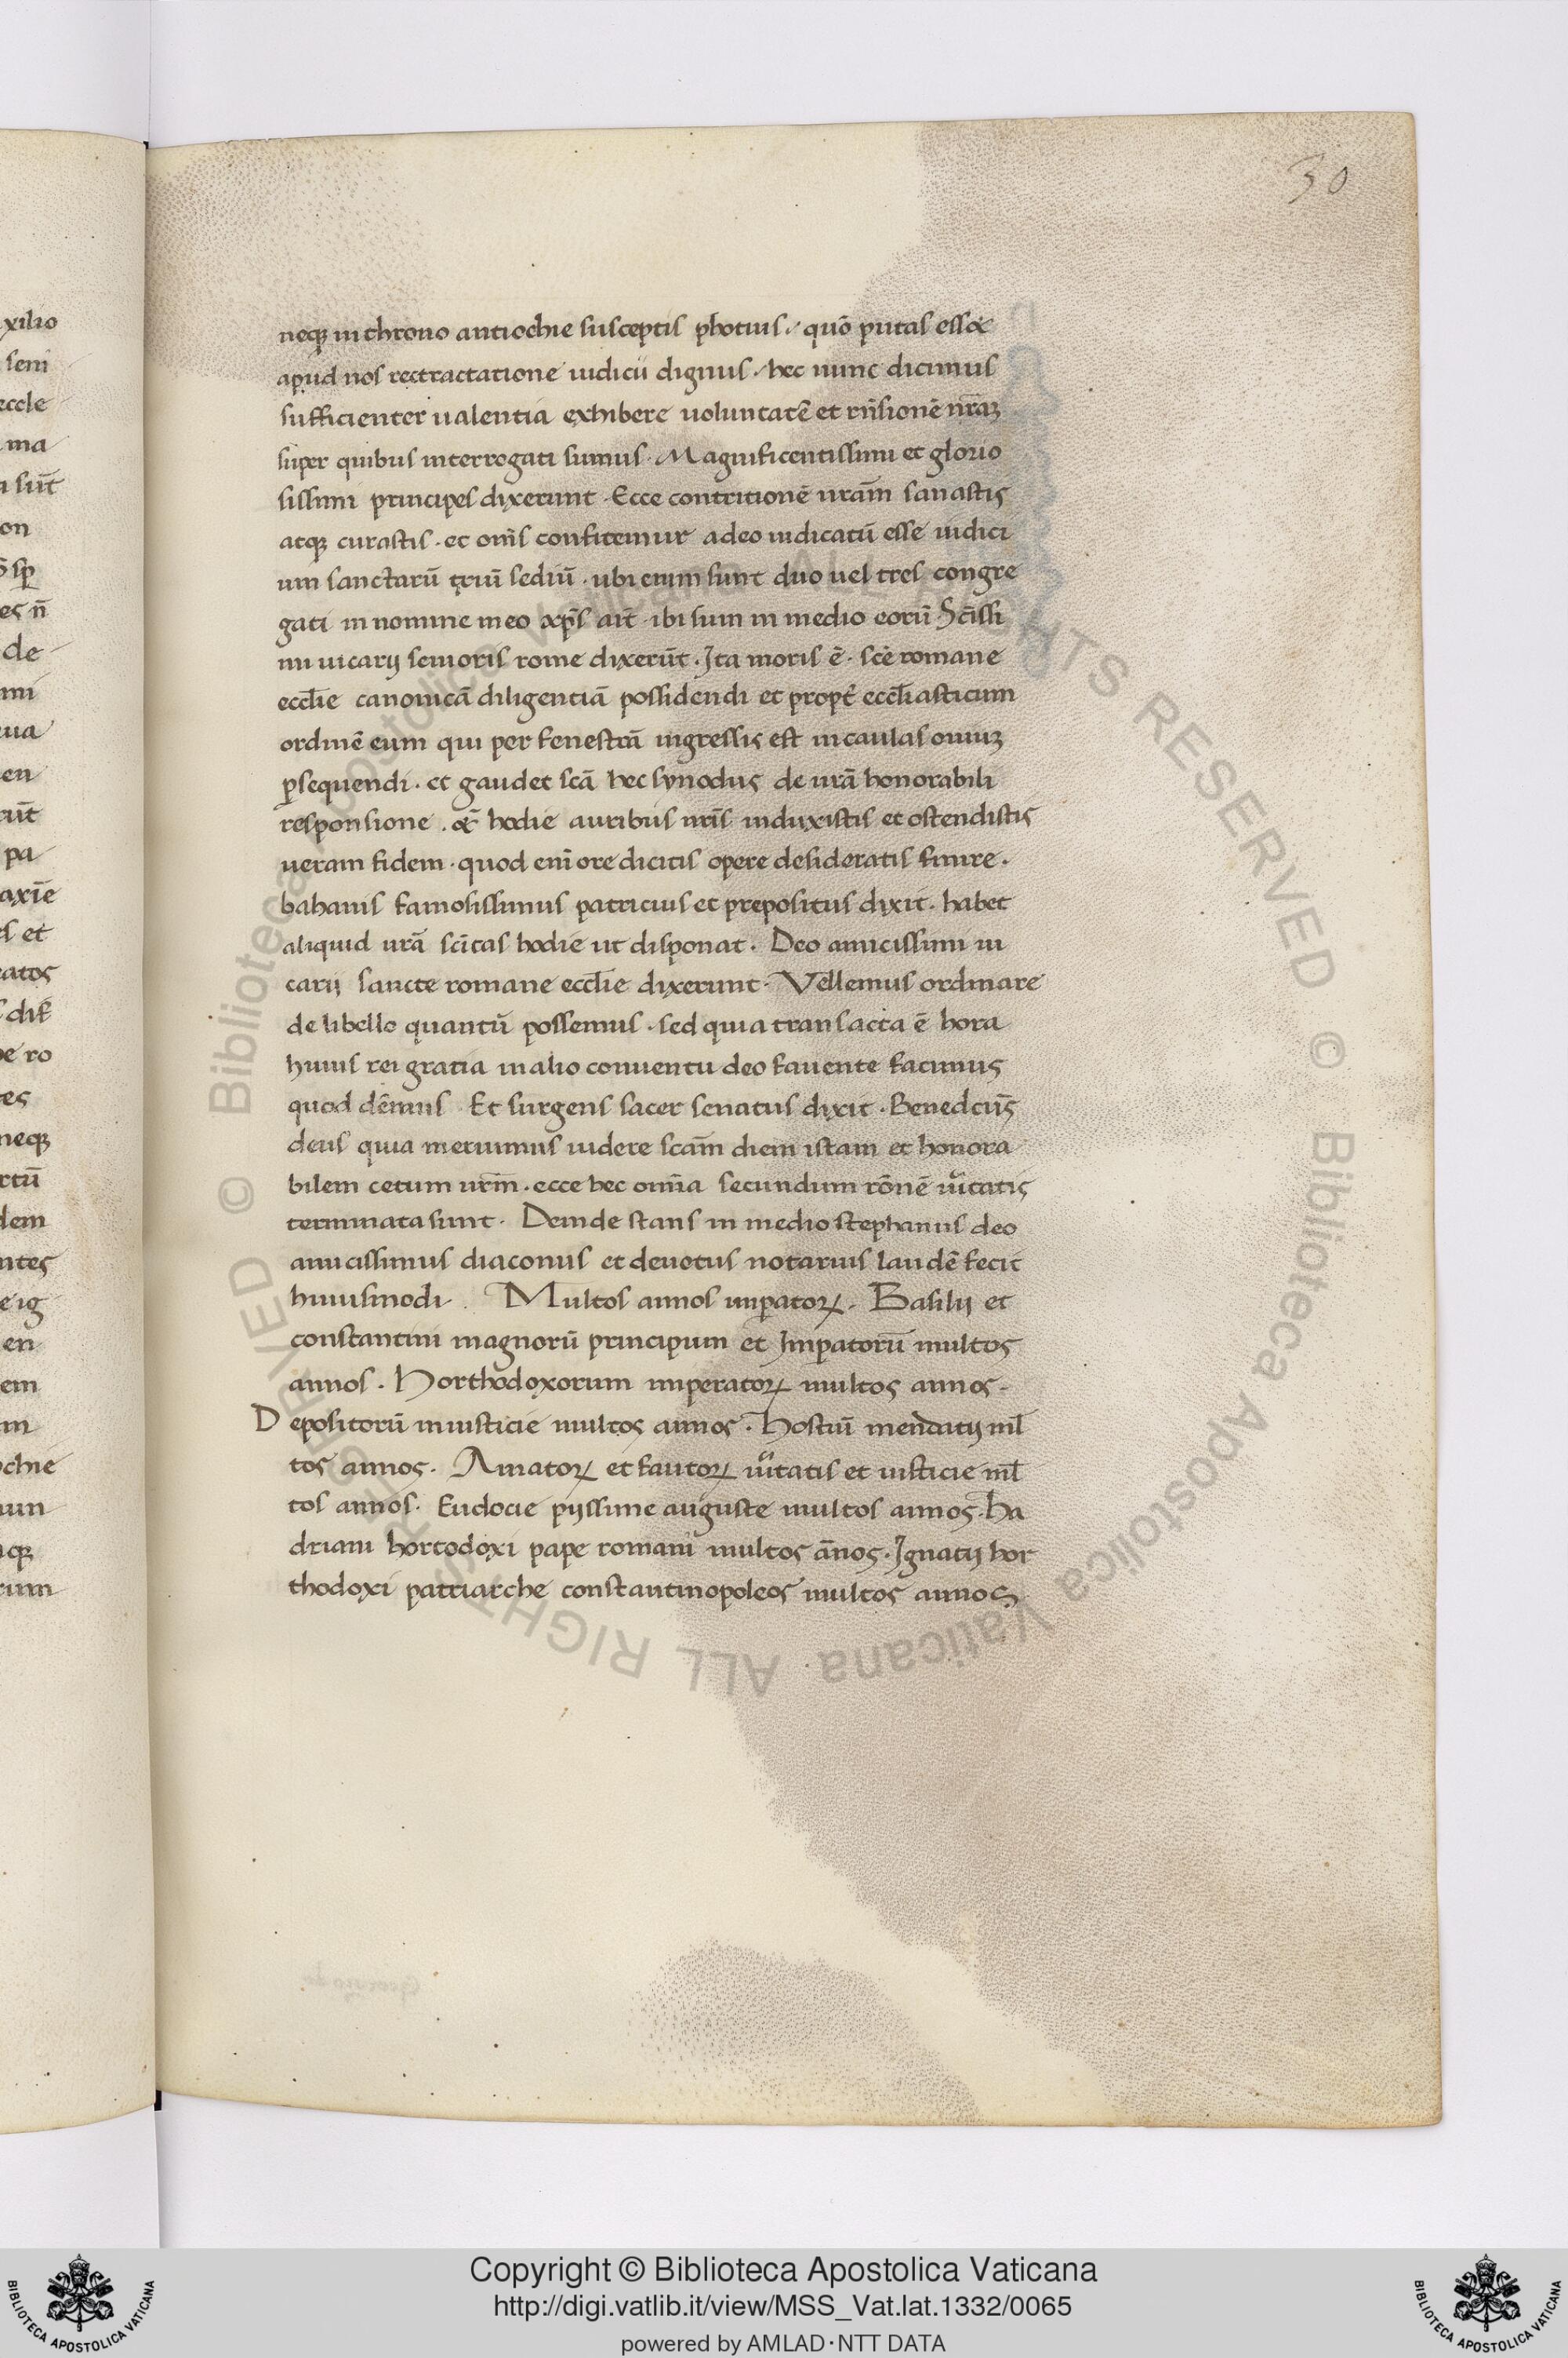 30
neqꝫ in throno antiochie susceptis photius. quō putas esset
apud nos rectractatione iudicii dignus. hec nunc dicimus
sufficienter ualentia exhibere uoluntatē et rn̄sionē nr̄aꝫ
super quibus interrogati sumus. Magnificentissimi et glorio
sissimi principes dixerunt. Ecce contritionē uram̄ sanastis
atqꝫ curastis. et om̄s confitemur adeo iudicatū esse iudici
um sanctarū triū sediū. ubi enim sunt duo uel tres congre
gati in nomine meo xp̄s ait ibi sum in medio eorū Sc̄issi
mi uicarij senioris rome dixerūt. Ita moris ē. sc̄e romane
eccl̄ie canonicā diligentiā possidendi et propt̄ eccl̄iasticum
ordinē eum qui per fenestrā ingressis est in caulas ouiuꝫ
ꝑsequendi. et gaudet scā hec synodus de urā honorabili
responsione. et hodie auribus nr̄is induxistis et ostendistis
ueram fidem. quod eni᷑ ore dicitis opere desideratis finire.
bahanis famosissimus patricius et prepositus dixit. habet
aliquid urā sc̄itas hodie ut disponat. Deo amicissimi ui
carij sancte romane eccl̄ie dixerunt. Vellemus ordinare
de libello quantū possemus. sed quia transacta ē hora
huius rei gratia in alio conuentu deo fauente facimus
quod dēmus Et surgens sacer senatus dixit. Benedcūs
deus quia meruimus uidere scam̄ diem istam et honora
bilem cetum urm̄. ecce hec omīa secundum rōnē ūitatis
terminata sunt. Deinde stans in medio stephanus deo
amicissimus diaconus et deuotus notarius laudē fecit
huiusmodi. Multos annos imꝑatoꝝ. Basilij et
constantini magnorū principum et Imꝑatorū multos
annos. Horthodoxorum imperatoꝝ multos annos.
Depositorū iniusticie multos annos. Hostiū mendatij ml̄
tos annos. Amatoꝝ et fautoꝝ ūitatis et iusticie ml̄
tos annos. Eudocie pijssime auguste multos annos. Ha
driani hortodoxi pape romani multos ānos. Ignatij hor
thodoxi patriarche constantinopoleos multos annos
Copyright © Biblioteca Apostolica Vaticana
http://digi.vatlib.it/view/MSS_Vat.lat.1332/0065
powered by AMLAD·NTT DATA